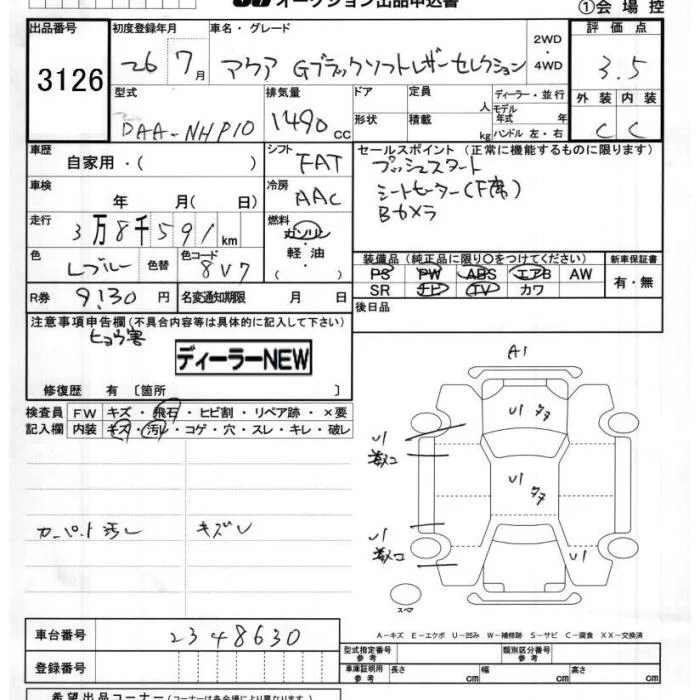 オークション出品申込書
①会場控
出品番号 初度登録年月 車名・グレード 評価点
3126 26 7月 アクア Gブラックソフトレザーセレクション 2WD・4WD 3.5
型式 排気量 ドア 定員 ディーラー・並行 外装 内装
DAA-NHP10 1490cc 形状 積載 人 kg モデル年式 年 ハンドル 左・右 C C
車歴 シフト セールスポイント (正常に機能するものに限ります)
自家用・( ) FAT プッシュスタート
車検 冷房 シートヒーター(F席)
年 月 ( 日) AAC Bカメラ
走行 燃料
3万8千591km ガソリン
色 色替 色コード 軽油 装備品 (純正品に限り○をつけてください) 新車保証書
Lブルー 8V7 ( ) PS PW ABS エアB AW 有・無
R券 9130円 名変通知期限 月 日 SR ナビ TV カワ
注意事項申告欄(不具合内容等は具体的に記入して下さい) 後日品
ヒョウ害
ディーラーNEW
修復歴 有 〔箇所 〕
検査員 FW キズ・飛石・ヒビ割・リペア跡・×要
記入欄 内装 キズ・汚レ・コゲ・穴・スレ・キレ・破レ
A1
U1 タタ
U1
U1 タタ
U1
U1
カーペット汚レ キズレ
スペア
車台番号 2348630
A-キズ E-エクボ U-凹み W-補修跡 S-サビ C-腐食 XX-交換済
登録番号
型式指定番号 参考 類別区分番号 参考
車庫証明用 参考 長さ cm 幅 cm 高さ cm
希望出品コーナー(コーナーは各会場により異なります)